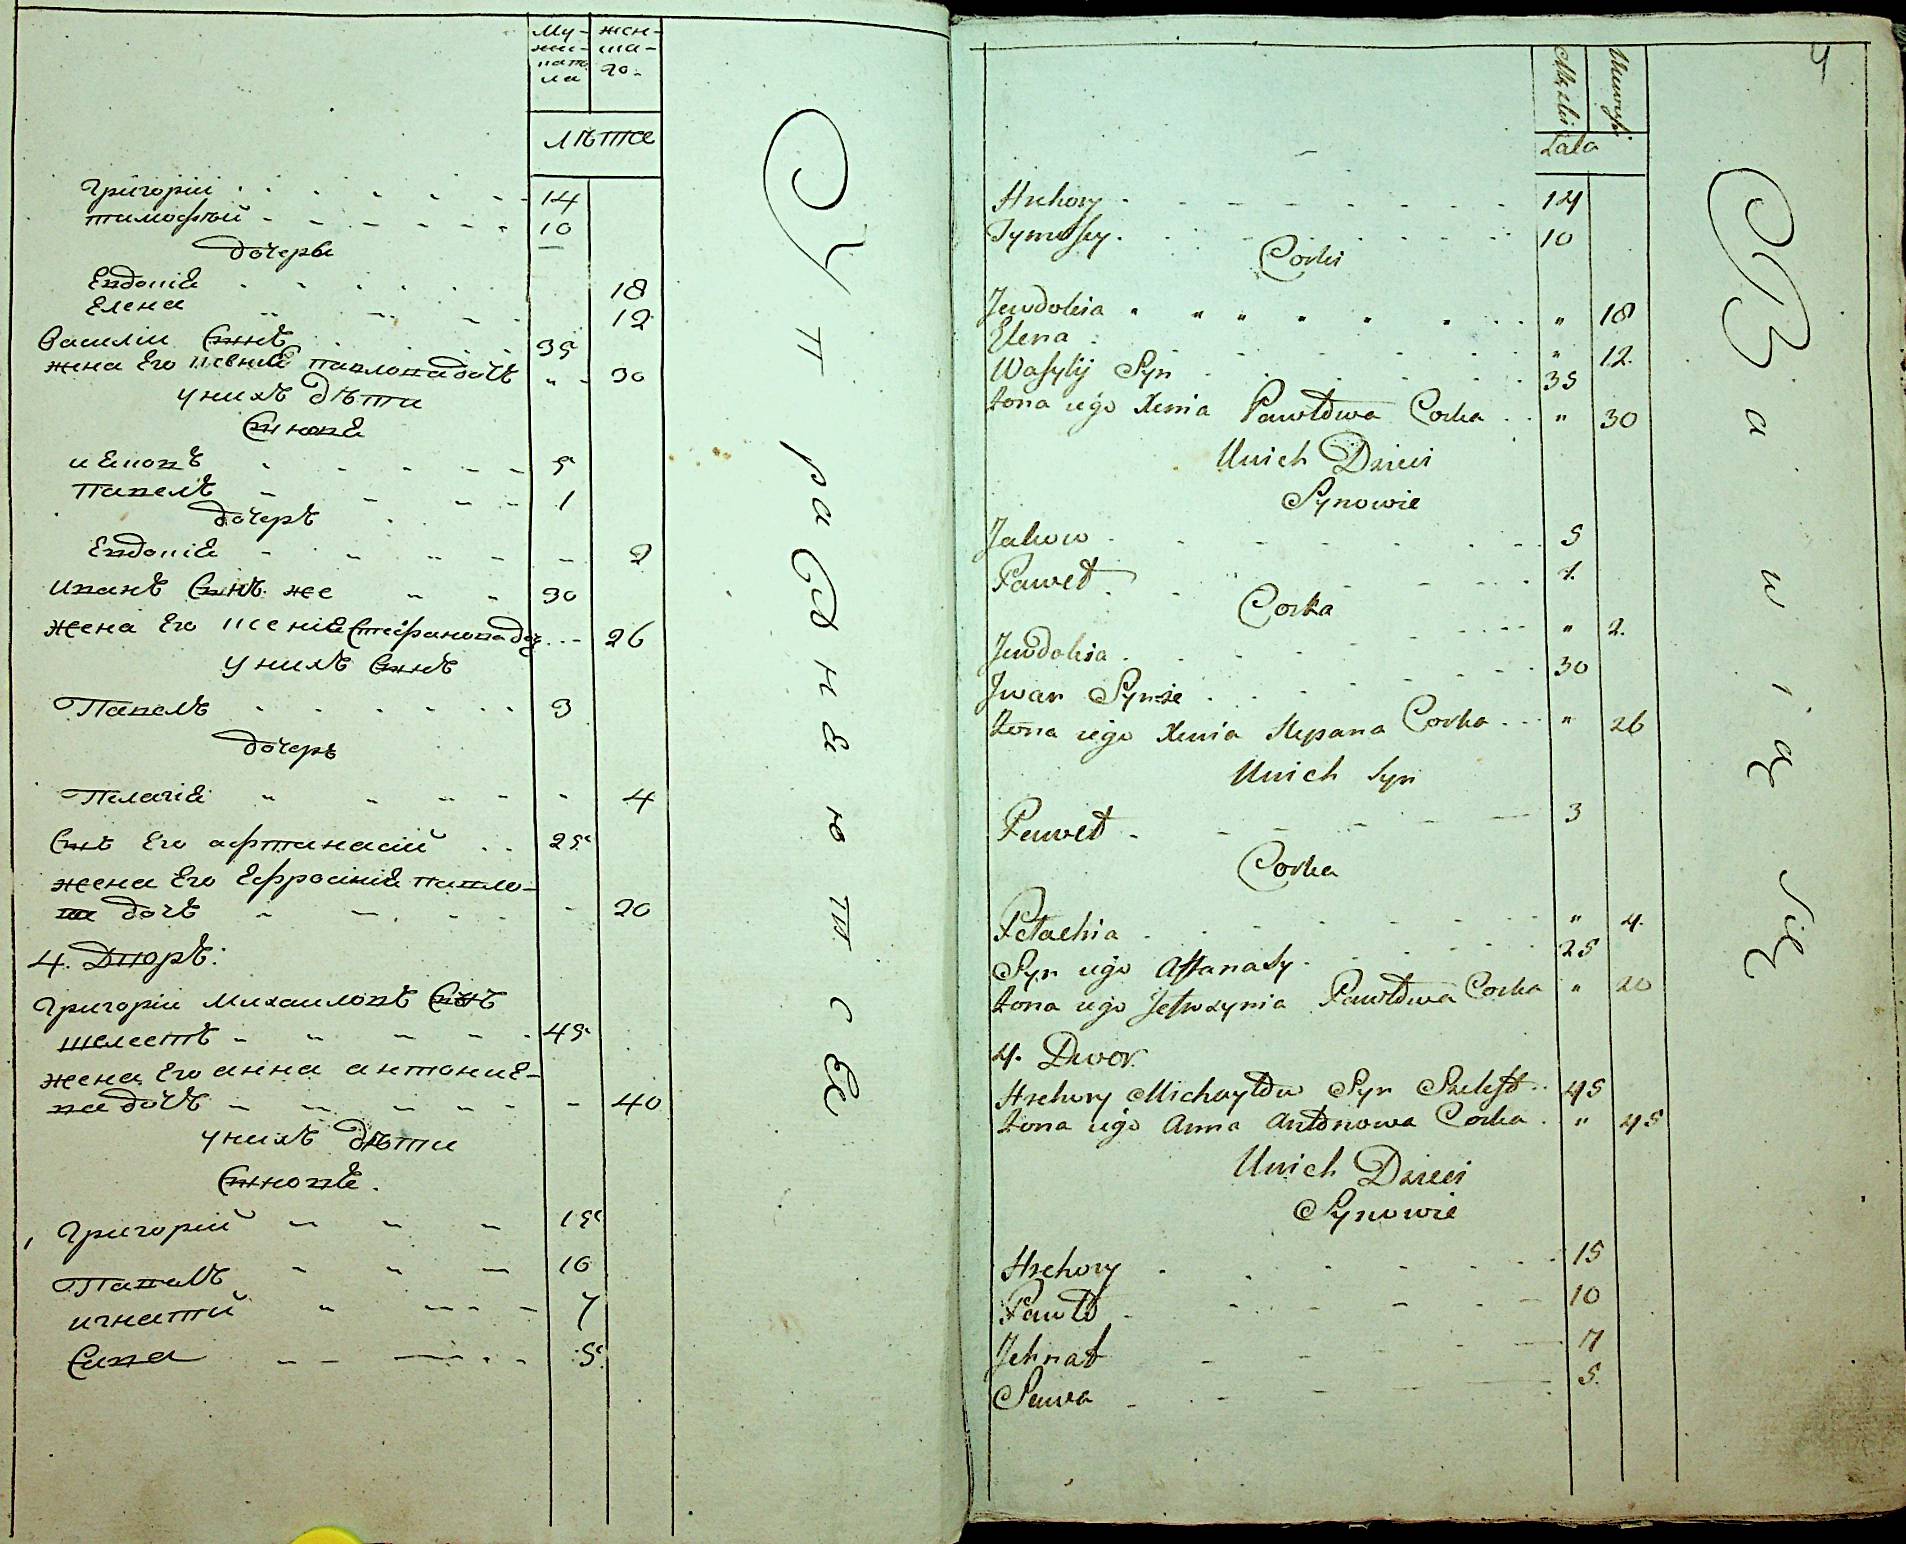 Му- жен-
жес- ша-
ната го-
ла
лѣта
Григорій 14
тимофѣй 10
дочери
Евдокія 18
Елена 12
Василіи Сынъ 35
жена Его павлова дочь " 30
у нихъ Дѣти
Сыновя
иаковъ 5
Павелъ 1
дочерь
Евдокія 2
иванъ Сынъ же 30
жена Его ксенія Стефанова доч 26
у нихъ Сынъ
Павелъ 3
дочерь
Пелагія 4
Сынъ Его афтанасій 25
жена Его Ефросинія павло-
ва дочь 20
4. Дворъ:
Григоріи Михаиловъ Сынъ
шелестъ 45
жена Его анна антоніе-
ва дочь 40
у нихъ дѣти
Сыновѣ.
Григорій 15
Павелъ 10
игнатій 7
Сава 5
Управняются
4
Męzki
Lata
Hrehory 14
Tymofey 10
Corki
Jewdokia " 18
Elena " 12
Wasylÿ Syn 35
żona iego Xenia Pawłowa Corka " 30
Unich Dzieci
Synowie
Jakow 5
Paweł 1
Corka
Jewdokia " 2
Jwan Synże 30
żona iego Xenia Stepana Corka " 26
Unich Syn
Paweł 3
Corka
Pełachia " 4
Syn iego Affanasy 25
żona iego Jefrozynia Pawłowa Corka " 20
4. Dwor
Hrehory Michayłow Syn Szelest 45
żona iego Anna Antonowa Corka " 45
Unich Dzieci
Synowie
Hrehory 15
Pawło 10
Jehnat 7
Sawa 5
Bawią się